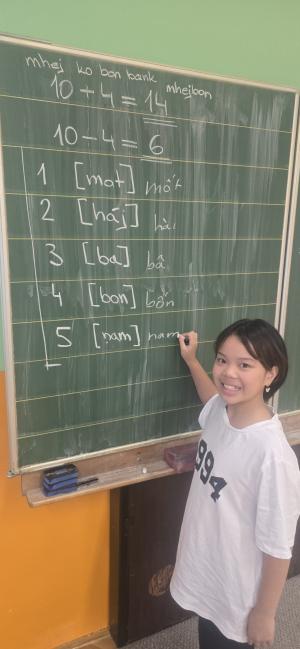 mhej ko bon bank
10 + 4 = 14 mhejbon
10 - 4 = 6
1 [mot] một
2 [háj] hài
3 [ba] bâ
4 [bon] bốn
5 [nam] nam
994